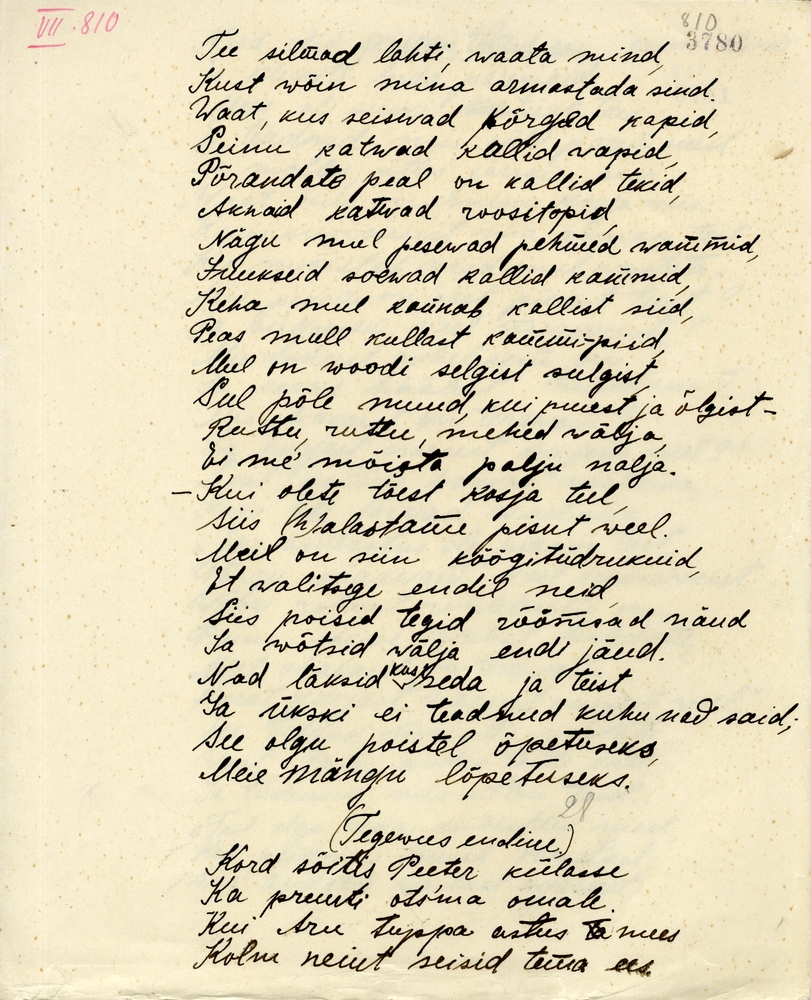 VII. 810
810
3780
Tee silmad lahti, waata mind,
Kust wõin mina armastada sind.
Waat, kus seiswad kõrged kapid,
Seinu katwad kallid wapid,
Põrandate peal on kallid tekid,
Aknaid katwad roositopid,
Nägu mul pesewad pehmed wammid,
Juukseid soewad kallid kammid,
Keha mul kannab kallist siid,
Peas mull kullast kammi-piid,
Mul on woodi selgist sulgist,
Sul põle muud, kui puust ja õlgist –
Ruttu, ruttu, mehed wälja,
Ei me mõista palju nalja.
– Kui olete tõest kosja teel,
Siis (h)alastame pisut weel.
Meil on siin köögitüdrukuid,
Et walitsege endil neid,
Siis poisid tegid rõõmsad näud
Ja wõtsid wälja endi jäud.
Nad läksid kust seda ja teist
Ja ükski ei teadnud kuhu nad said;
See olgu poistel õpetuseks,
Meie mängu lõpetuseks.
28
(Tegewus endine.)
Kord sõitis Peeter külasse
Ka pruuti otsima omale.
Kui Aru tuppa astus ta mees
Kolm neiut seisid tema ees.